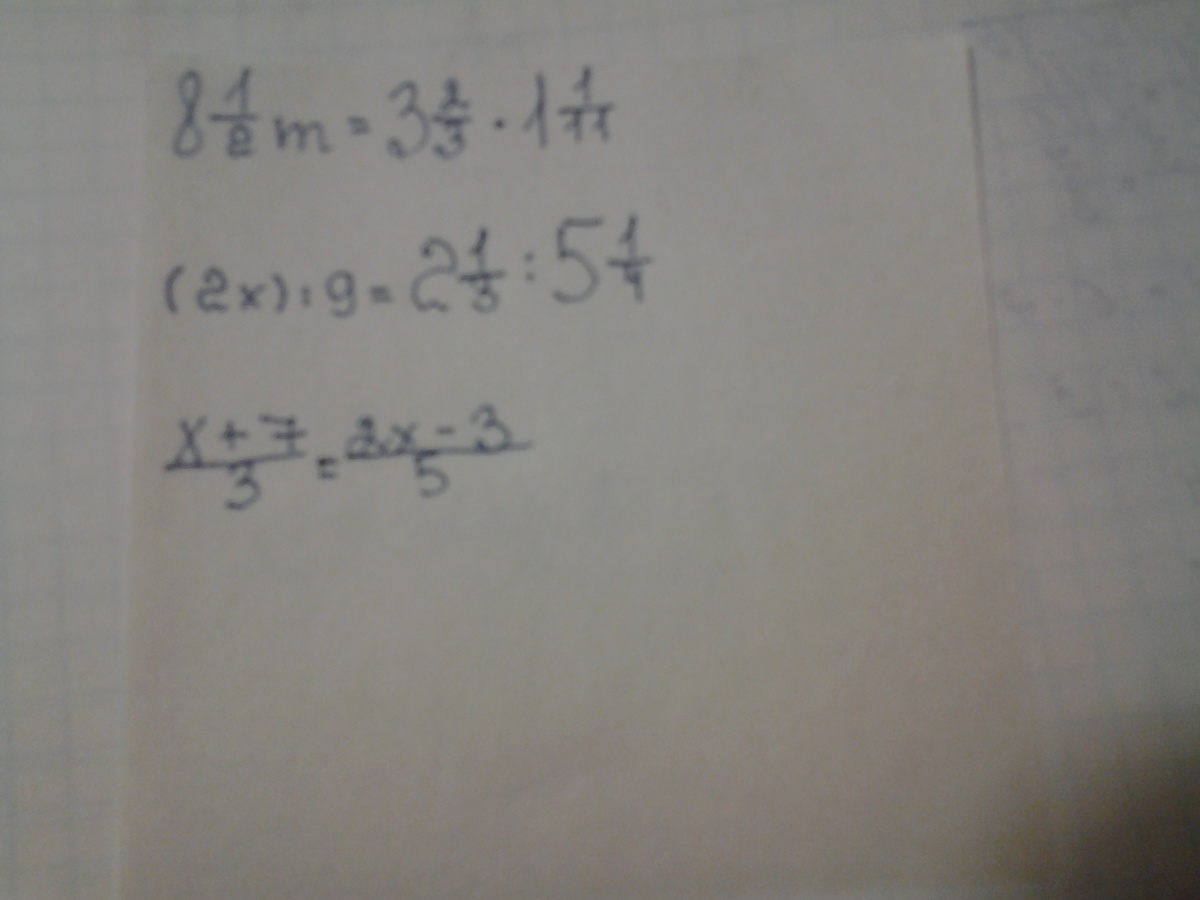 8 1/2 m = 3 2/3 · 1 1/11
(2x) : 9 = 2 1/3 : 5 1/4
x + 7 / 3 = 2x - 3 / 5